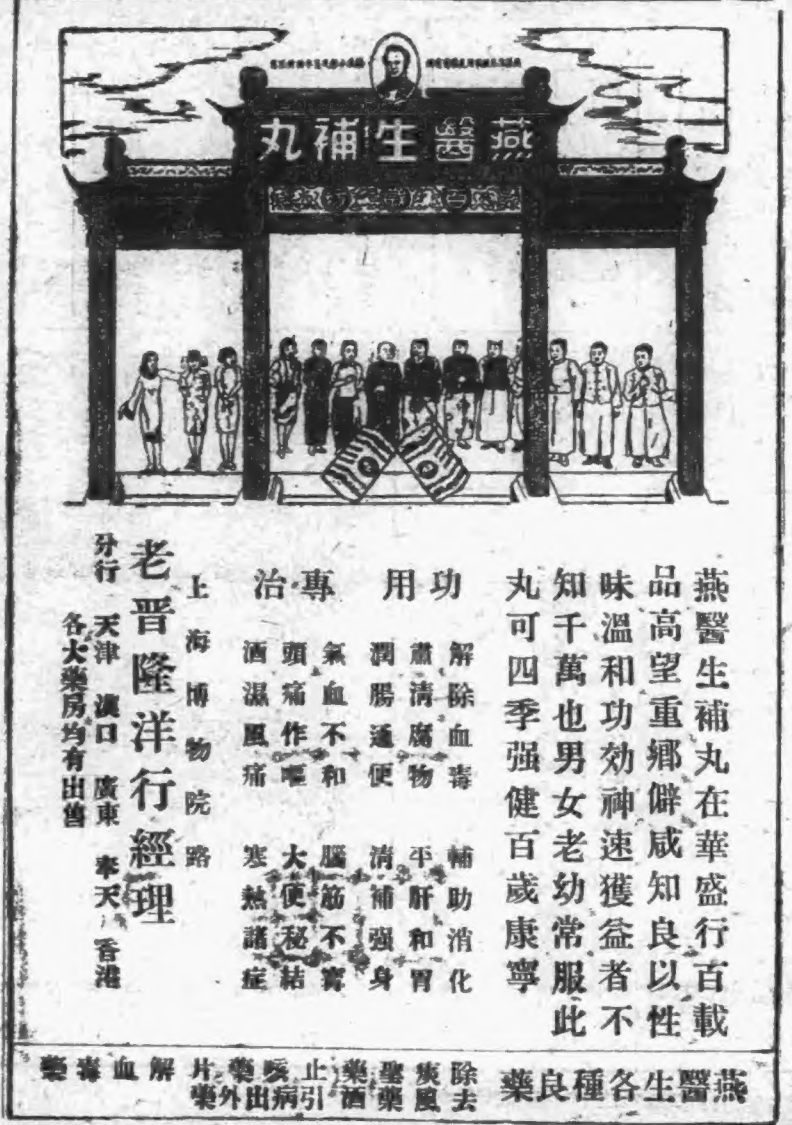 燕醫生補丸
燕醫生補丸在華盛行百載
品高望重鄉僻咸知良以性
味溫和功効神速獲益者不
知千萬也男女老幼常服此
丸可四季强健百歲康寧
功用
解除血毒 輔助消化
肅清腐物 平肝和胃
潤腸通便 清補强身
專治
氣血不和 腦筋不寗
頭痛作嘔 大便秘結
酒濕風痛 寒熱諸症
上海博物院路
老晋隆洋行經理
分行 天津 漢口 廣東 奉天 香港
各大藥房均有出售
燕醫生各種良藥
除去痰風聖藥
止咳藥酒
引病出外藥片
解血毒藥